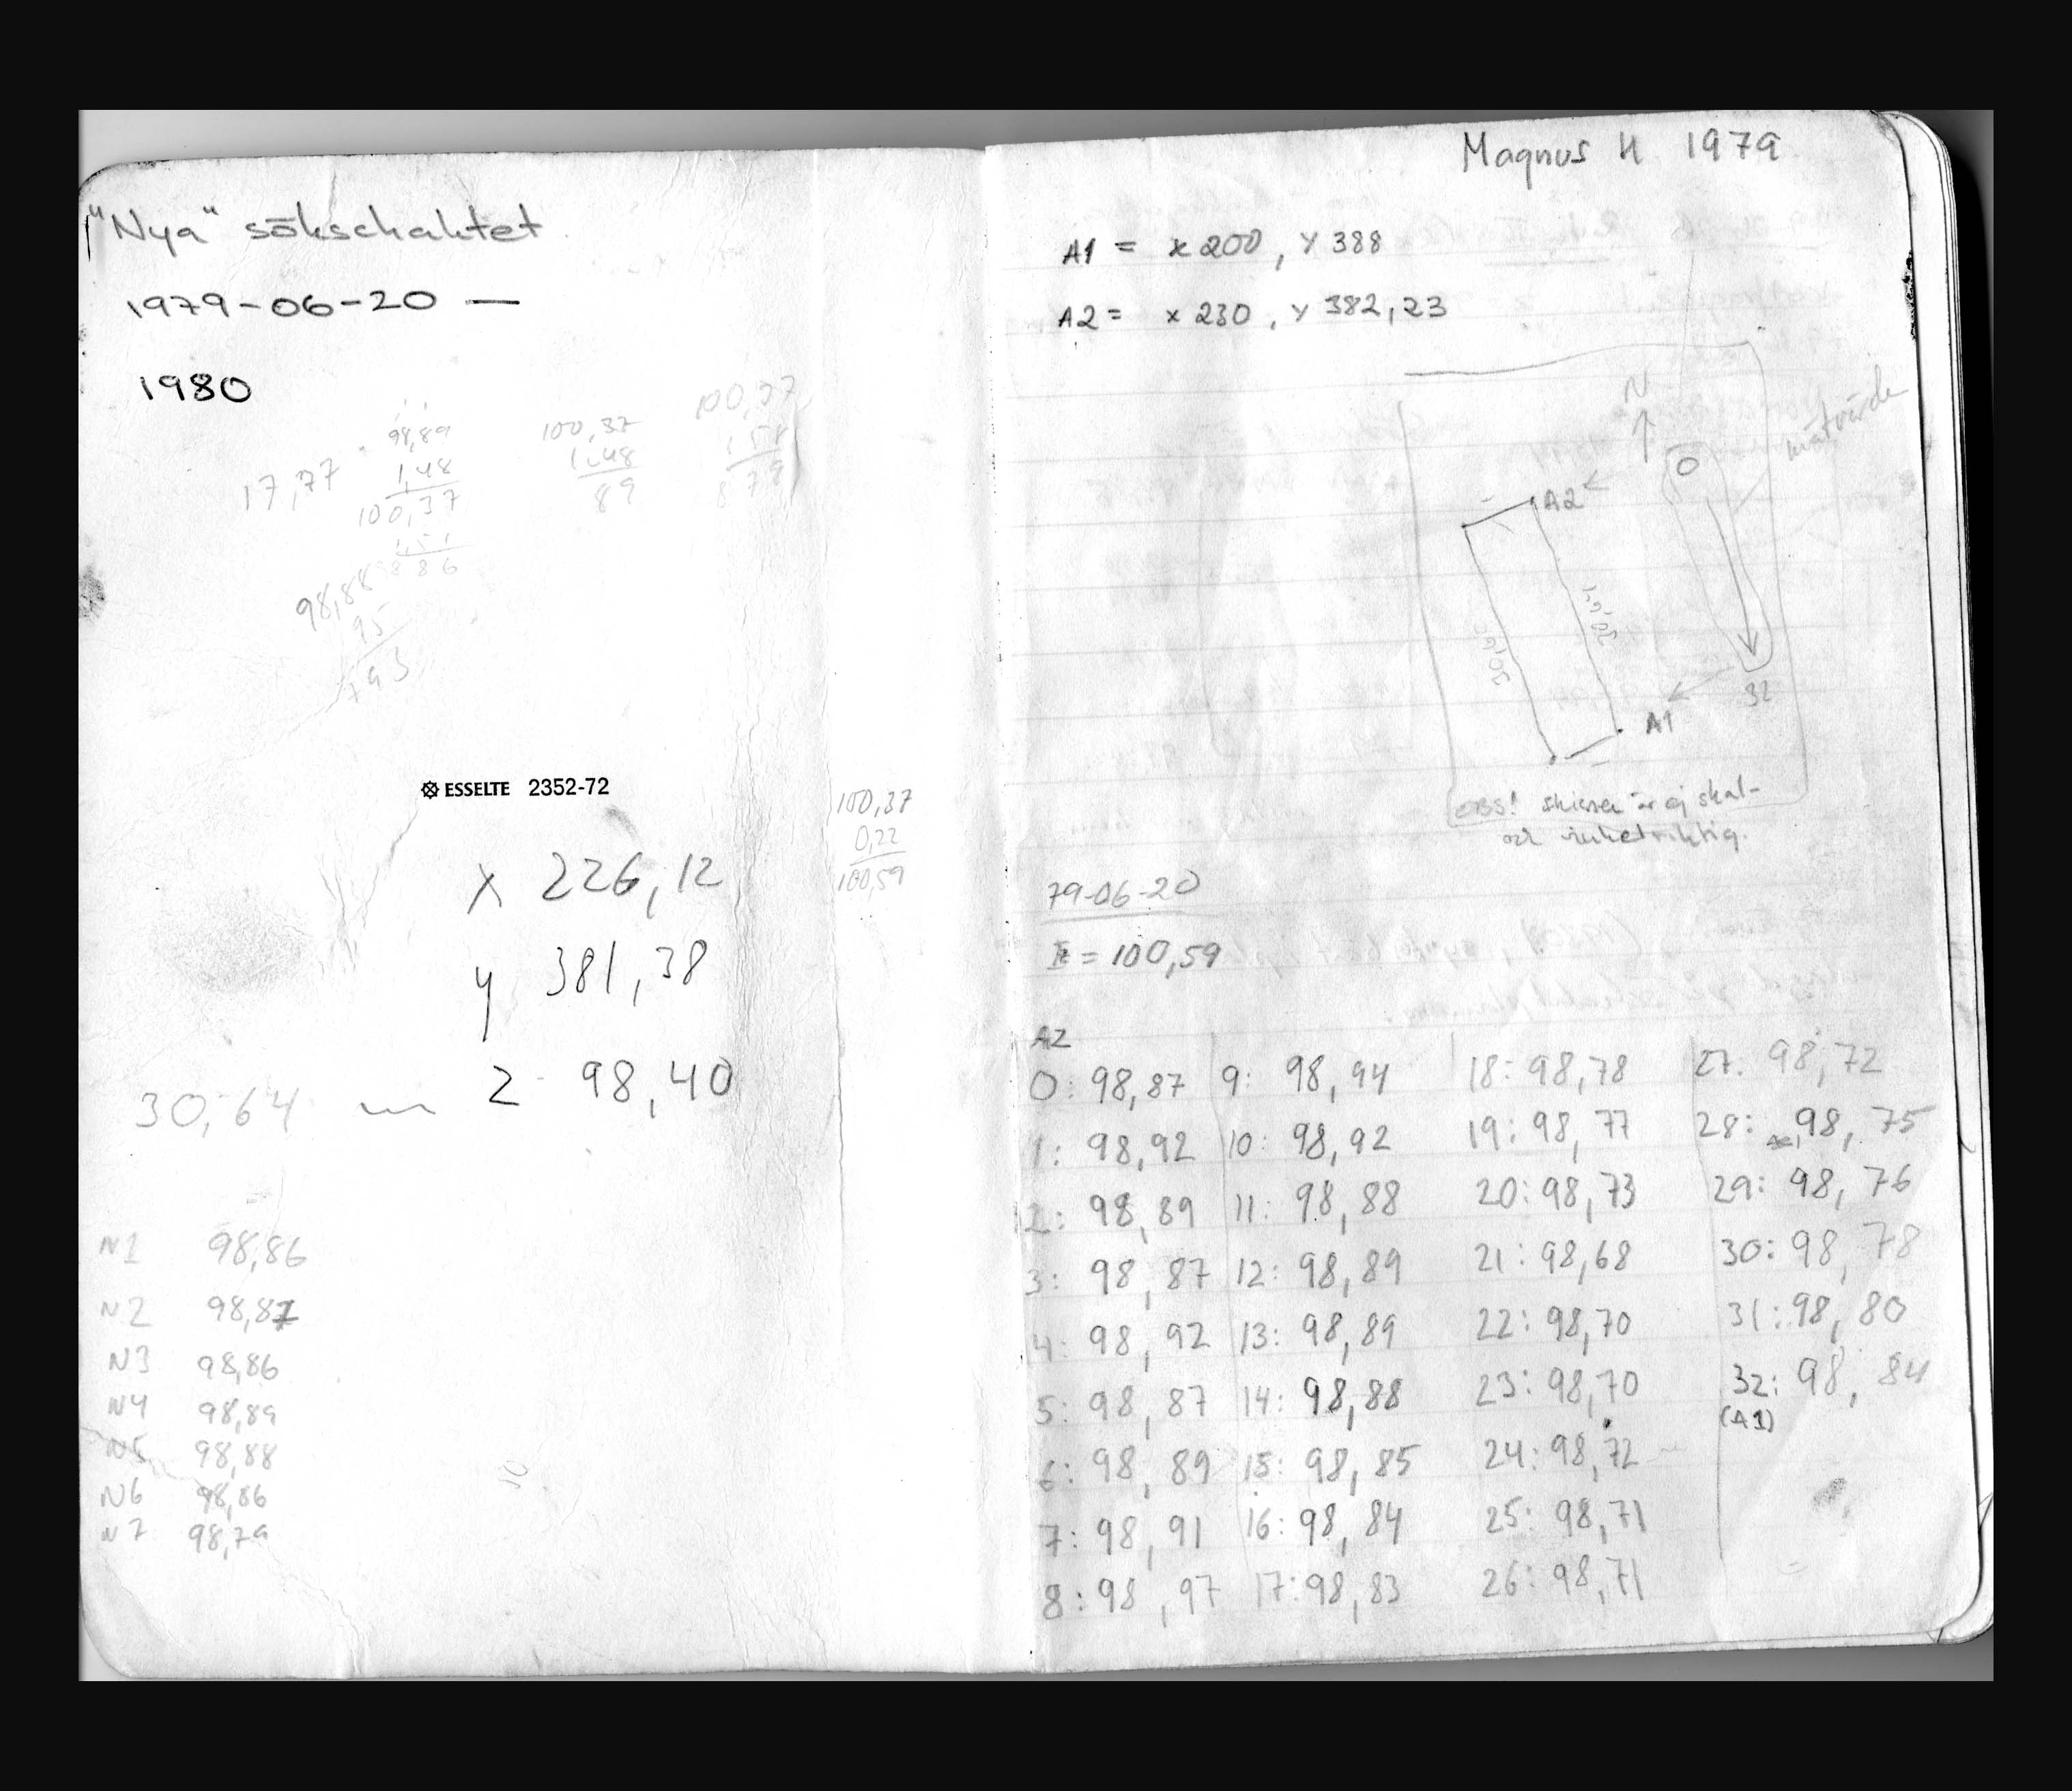 "Nya" sökschaktet
1979-06-20 —
1980
17,77
98,89
1,48
100,37
1,51
886
100,37
1,48
89
100,37
1,58
879
98,88
95
793
ESSELTE 2352-72
x 226,12
y 381,38
z 98,40
30,64
N1 98,86
N2 98,87
N3 98,86
N4 98,89
N5 98,88
N6 98,86
N7 98,79
100,37
0,22
100,59
Magnus H 1979
A1 = x 200, Y 388
A2 = x 230, Y 382,23
N
mätvärde
0
A2
A1
32
OBS! skissen är ej skal-
och vinkelriktig.
79-06-20
= 100,59
A2
0: 98,87 9: 98,94 18: 98,78 27. 98,72
1: 98,92 10: 98,92 19: 98,77 28: 98,75
2: 98,89 11: 98,88 20: 98,73 29: 98,76
3: 98,87 12: 98,89 21: 98,68 30: 98,78
4: 98,92 13: 98,89 22: 98,70 31: 98,80
5: 98,87 14: 98,88 23: 98,70 32: 98,84
(A1)
6: 98,89 15: 98,85 24: 98,72
7: 98,91 16: 98,84 25: 98,71
8: 98,97 17: 98,83 26: 98,71